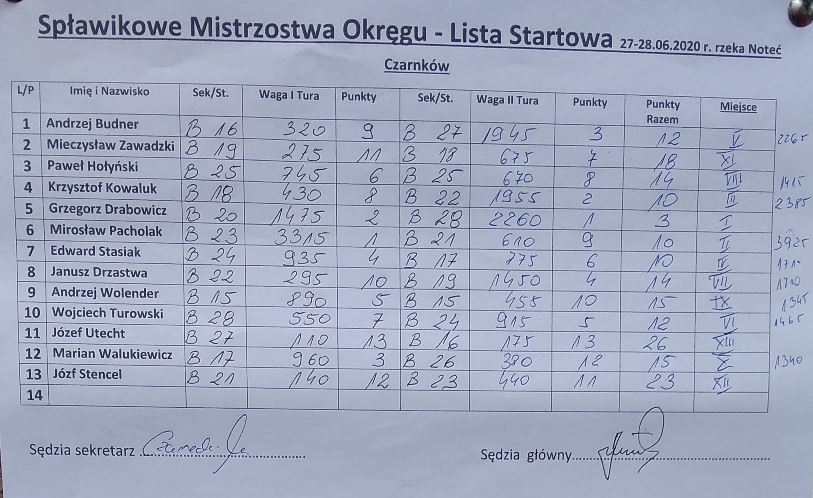 Spławikowe Mistrzostwa Okręgu - Lista Startowa 27-28.06.2020 r. rzeka Noteć
Czarnków
L/P Imię i Nazwisko Sek/St. Waga I Tura Punkty Sek/St. Waga II Tura Punkty Punkty Razem Miejsce
1 Andrzej Budner B 16 320 9 B 27 1945 3 12 V 2265
2 Mieczysław Zawadzki B 19 275 11 B 18 675 7 18 XI
3 Paweł Hołyński B 25 745 6 B 25 670 8 14 VIII 1415
4 Krzysztof Kowaluk B 18 430 8 B 22 1955 2 10 III 2385
5 Grzegorz Drabowicz B 20 1475 2 B 28 2260 1 3 I
6 Mirosław Pacholak B 23 3315 1 B 21 610 9 10 II 3925
7 Edward Stasiak B 24 935 4 B 17 775 6 10 IV 1710
8 Janusz Drzastwa B 22 295 10 B 19 1450 4 14 VII 1710
9 Andrzej Wolender B 15 890 5 B 15 455 10 15 IX 1345
10 Wojciech Turowski B 28 550 7 B 24 915 5 12 VI 1465
11 Józef Utecht B 27 110 13 B 16 175 13 26 XIII
12 Marian Walukiewicz B 17 960 3 B 26 380 12 15 X 1340
13 Józf Stencel B 21 140 12 B 23 440 11 23 XII
14
Sędzia sekretarz
Sędzia główny